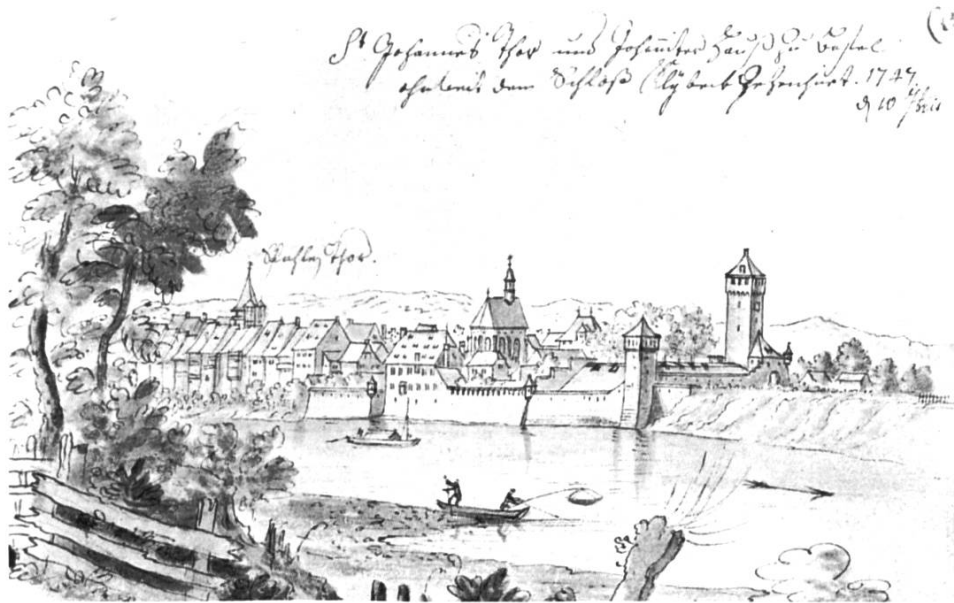 St Johannes Thor und Johanniter Hauß zu Basel
ohnweit dem Schloß Clÿbeck Gezeichnet. 1747.
d 10
Spahle Thor.